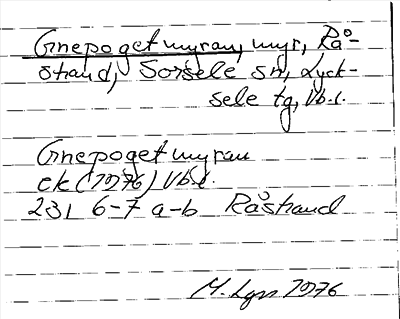 Gnepogetmyran, myr, Rå-
strand, Sorsele sn, Lyck-
sele tg, Vb.l.
Gnepogetmyran
ek (1976) Vb.l.
23I 6-7 a-b Råstrand
M. Lgn 1976